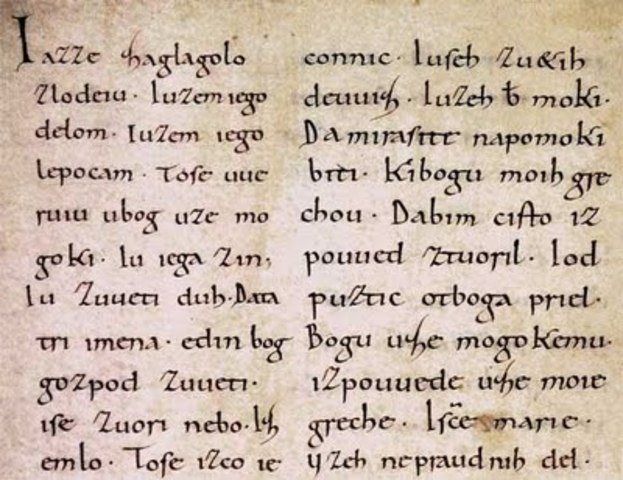 Iazze zaglagolo
zlodeiu · Iuzem iego
delom · Iuzem iego
lepocam · Tose uue
ruiu ubog uze mo
goki · Iu iega zin,
Iu zuueti duh · Data
tri imena · edin bog
gozpod zuueti ·
ise zuori nebo · Iz
emlo · Tose izco ie
connic · Iuseh zu&ih
deuuiz · Iuzeh ƀ moki ·
Damirasite napomoki
biti · Kibogu moih gre
chou · Dabim cisto iz
pouued ztuoril · Iod
puztic otboga priel ·
Bogu uze mogokemu ·
izpouuede uze moie
greche · Isc̄e marie ·
yzeh nepraudnih del ·